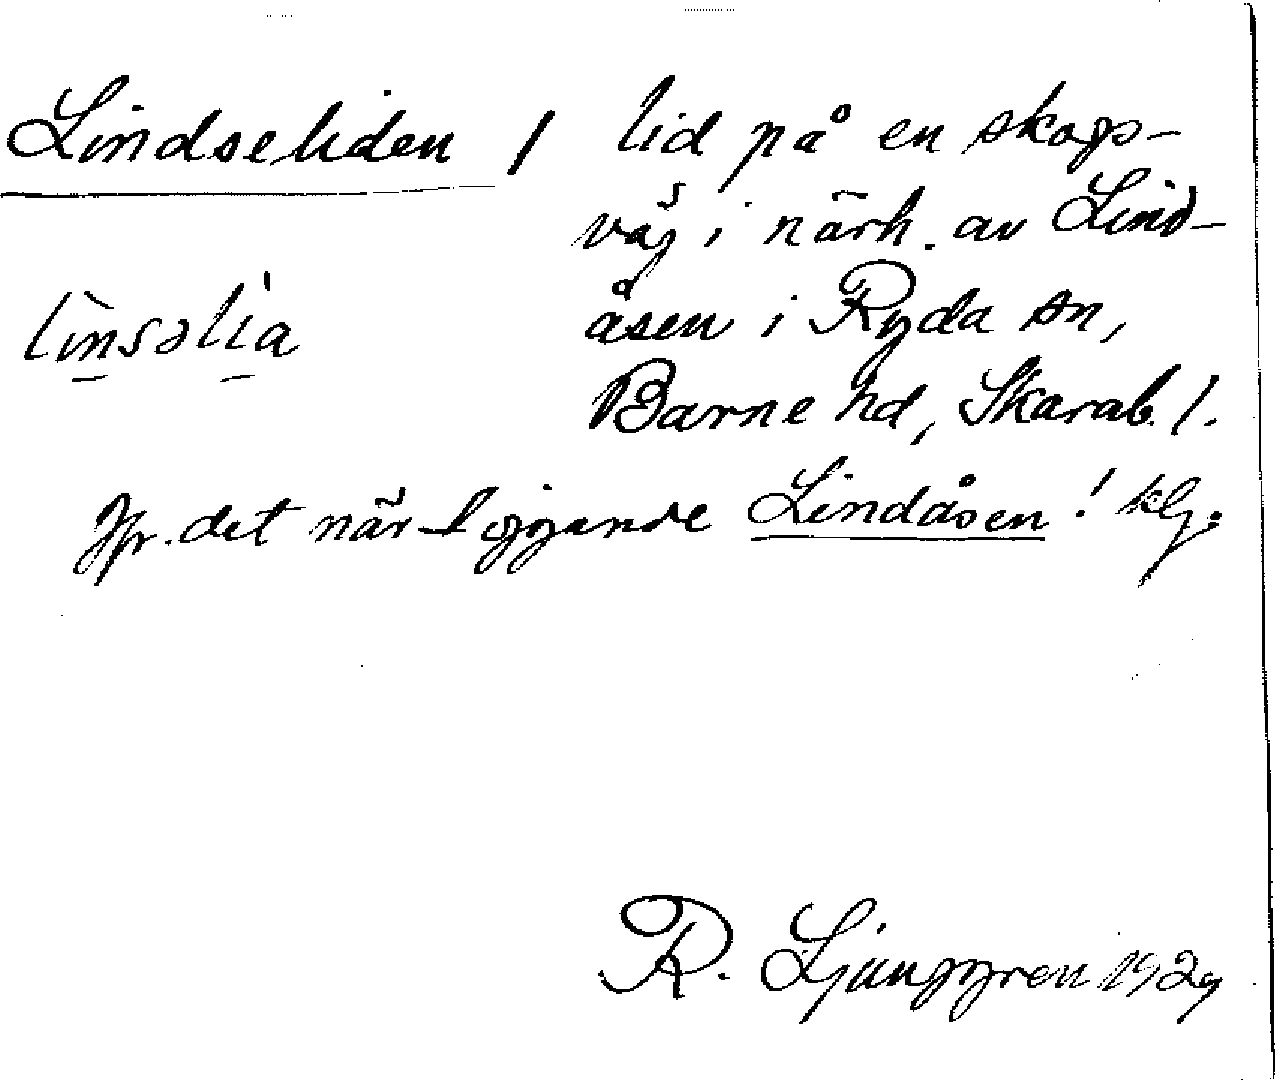 Lindseliden / lid på en skogs-
väg i närh. av Lind-
lìnsəlìa åsen i Ryda sn,
Barne hd, Skarab. l.
Jfr. det närliggande Lindåsen! klg.
R. Ljunggren 1929